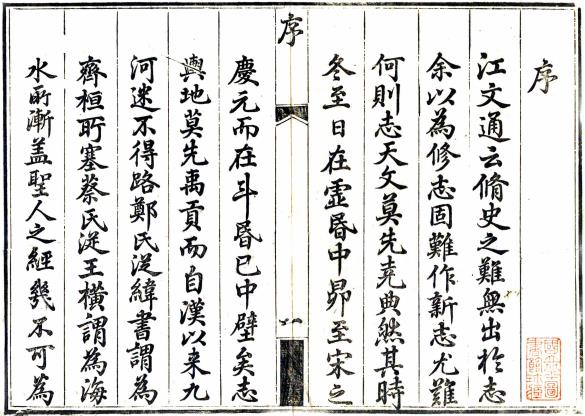 序
江文通云脩史之難無出於志
余以為修志固難作新志尤難
何則志天文莫先堯典然其時
冬至日在虛昬中昴至宋之
序
慶元而在斗昬已中壁矣志
輿地莫先禹貢而自漢以来九
河迷不得路鄭氏從緯書謂為
齊桓所塞蔡氏從王横謂為海
水所漸盖聖人之經幾不可為